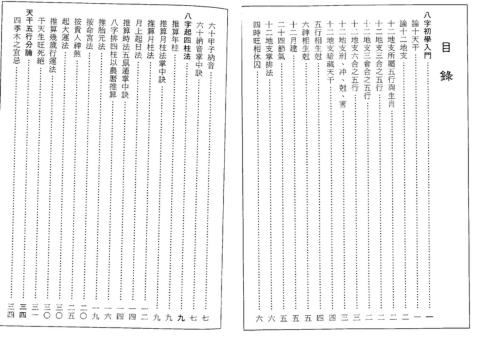 目錄
八字初學入門……一
論十天干……一
論十二地支……一
十二地支所屬五行與生肖……二
十二地支三會合之五行……二
十二地支三合之五行……二
十二地支六合之五行……三
十二地支刑、冲、尅、害……三
十二地支暗藏天干……四
五行相生尅……四
六神相生尅……五
十二月建……五
二十四節氣……五
十二地支掌排法……六
四時旺相休囚……六
六十甲子納音……七
六十納音掌中訣……七
八字起四柱法……九
推算年柱……九
推算月柱法掌中訣……九
推算月柱法……一二
月上起日法……一四
推算時法五鼠遁掌中訣……一四
八字排四柱以農曆推算……一九
推胎元法……一九
按命宮法……二〇
按貴人神煞……二五
起大運法……三〇
推算幾歲行運法……三〇
十天生旺死絕……三一
天干五行分論……三四
四季木之宜忌……三四